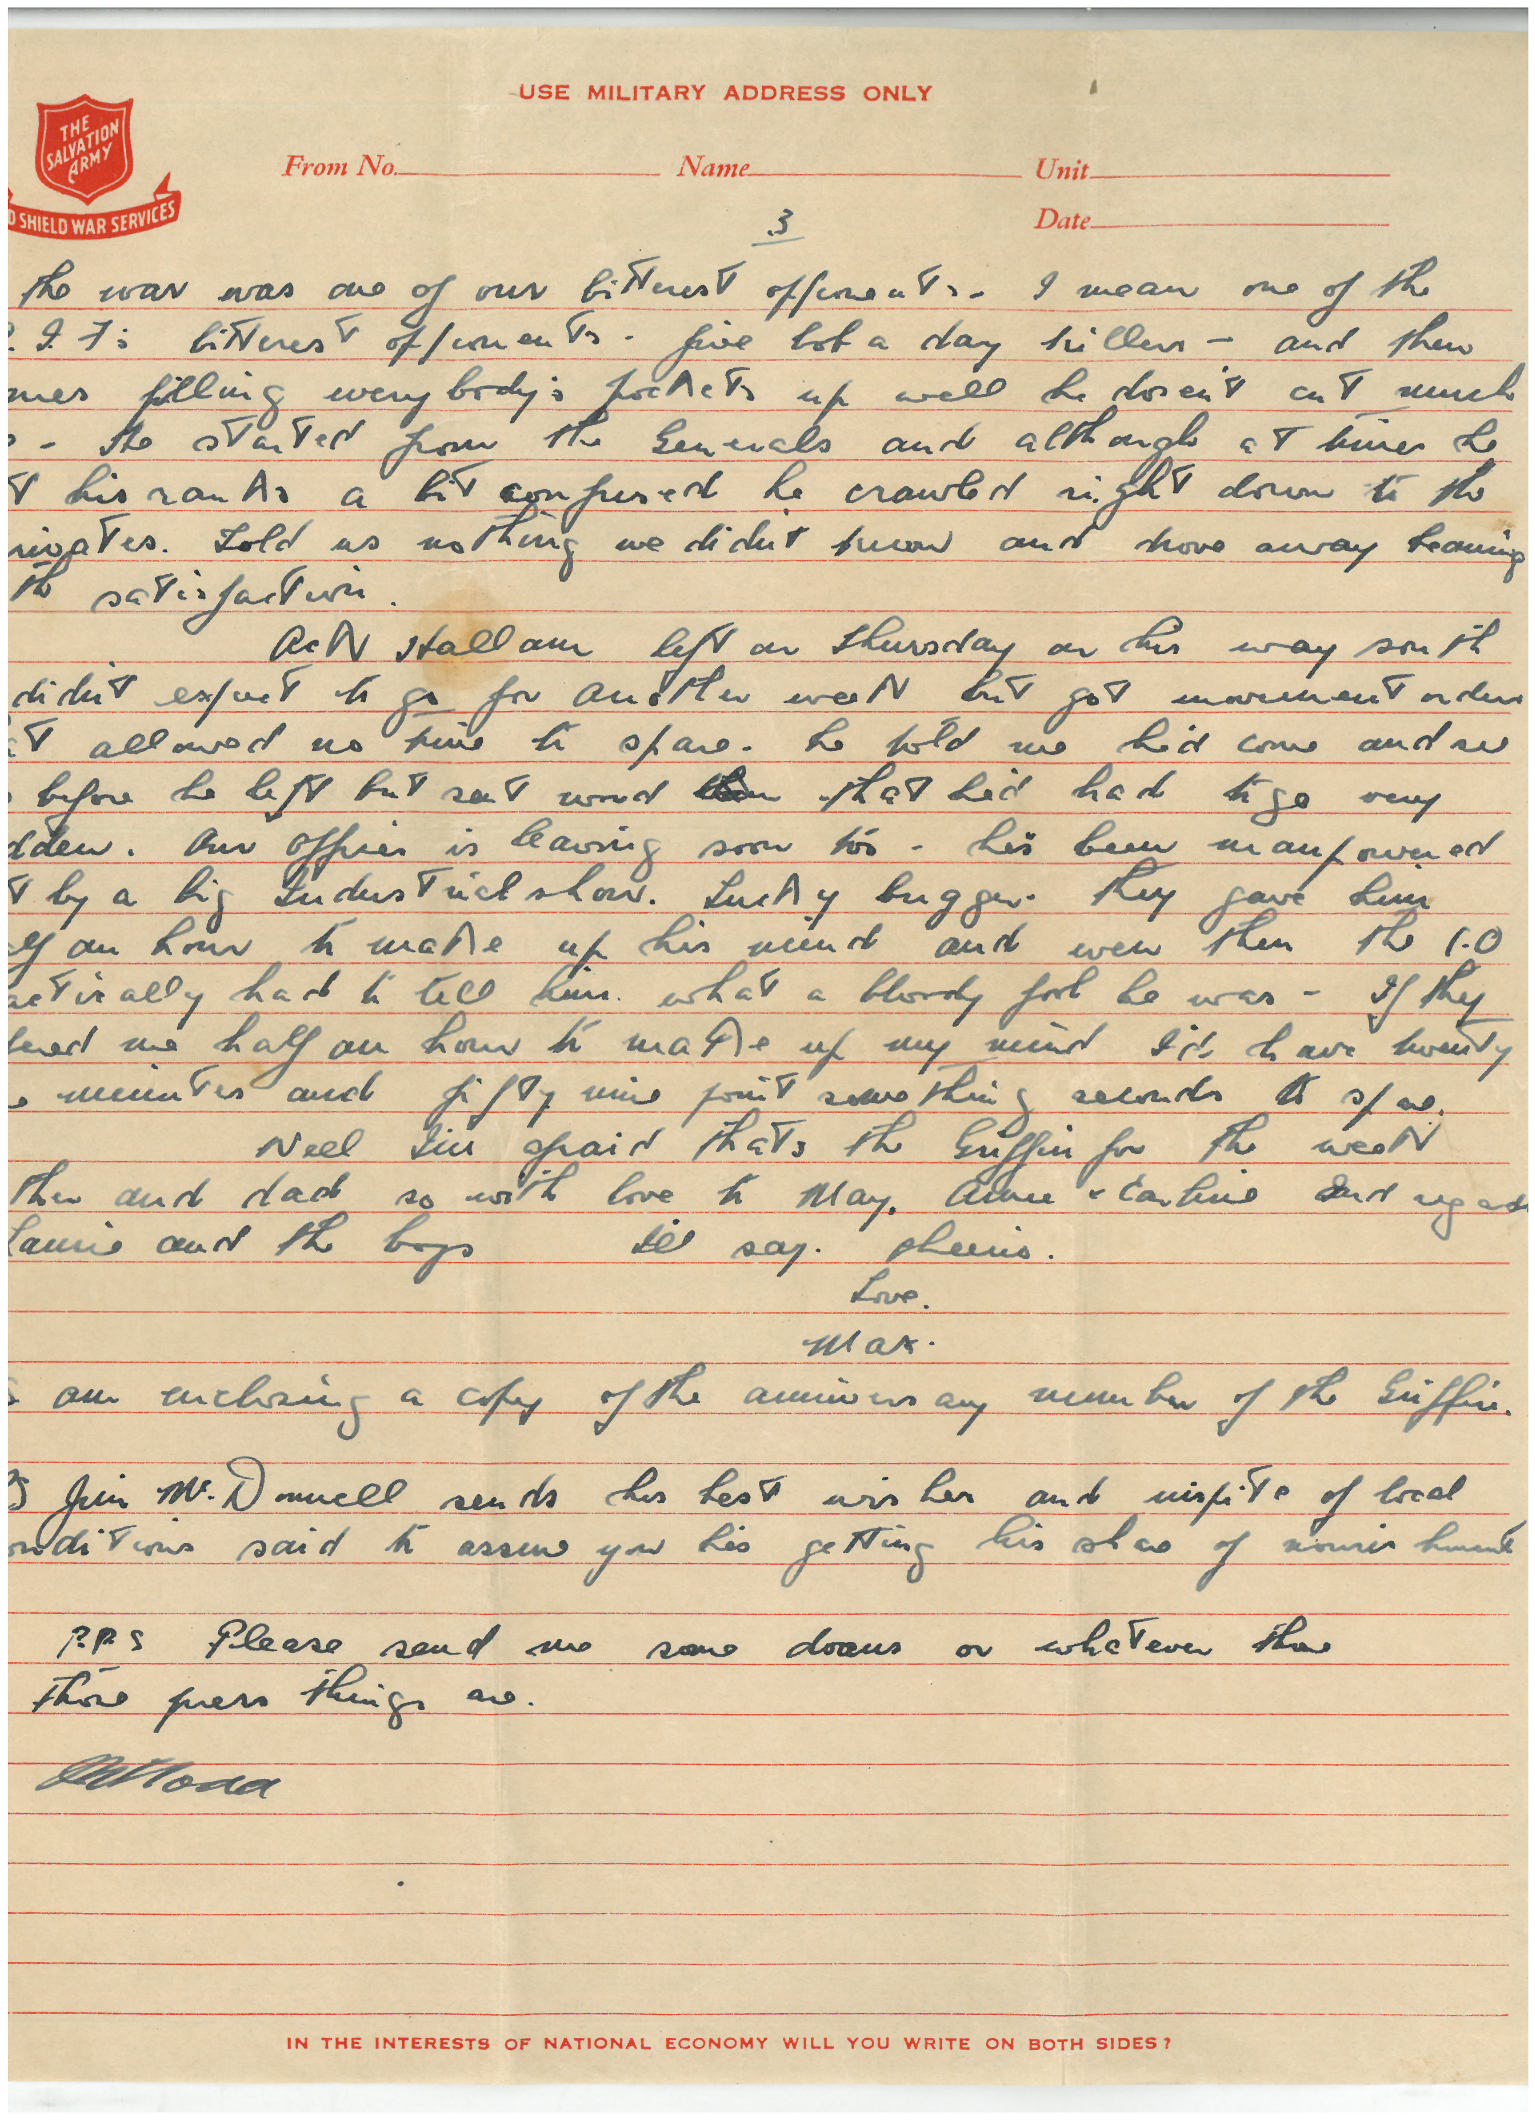 USE MILITARY ADDRESS ONLY
THE
SALVATION
ARMY
D SHIELD WAR SERVICES
From No. Name Unit
Date
3
the war was one of our bitterest opponents. I mean one of the
I.F's bitterest opponents. five bob a day killers - and then
mes filling everybody's pockets up well he doesn't cut much
- He started from the Generals and although at times he
t his ranks a bit confused he crawled right down to the
rivates. Told us nothing we didn't know and move away beaming
th satisfaction.
Ack Hallam left on Thursday on his way south
didn't expect to go for another week but got movement orders
at allowed no time to spare. he told me he'd come and see
before he left but sent word that he'd had to go very
dden. Our officer is leaving soon too - he's been manpowered
t by a big Industrial show. Lucky bugger. They gave him
lf an hour to make up his mind and even then the C.O
actically had to tell him what a bloody fool he was - If they
fered me half an hour to make up my mind I'd have twenty
e minutes and fifty nine point something seconds to spare.
Well I'm afraid thats the Griffin for the week
ther and dad so with love to May, Anne & and regards
Laurie and the boys Ill say. cheerio.
Love.
Max.
S am enclosing a copy of the anniversary number of the Griffin.
S Jim McDonnell sends his best wishes and inspite of local
onditions said to assure you he's getting his share of nourishment
P.P.S Please send me some or whatever the
those press things are.
IN THE INTERESTS OF NATIONAL ECONOMY WILL YOU WRITE ON BOTH SIDES?